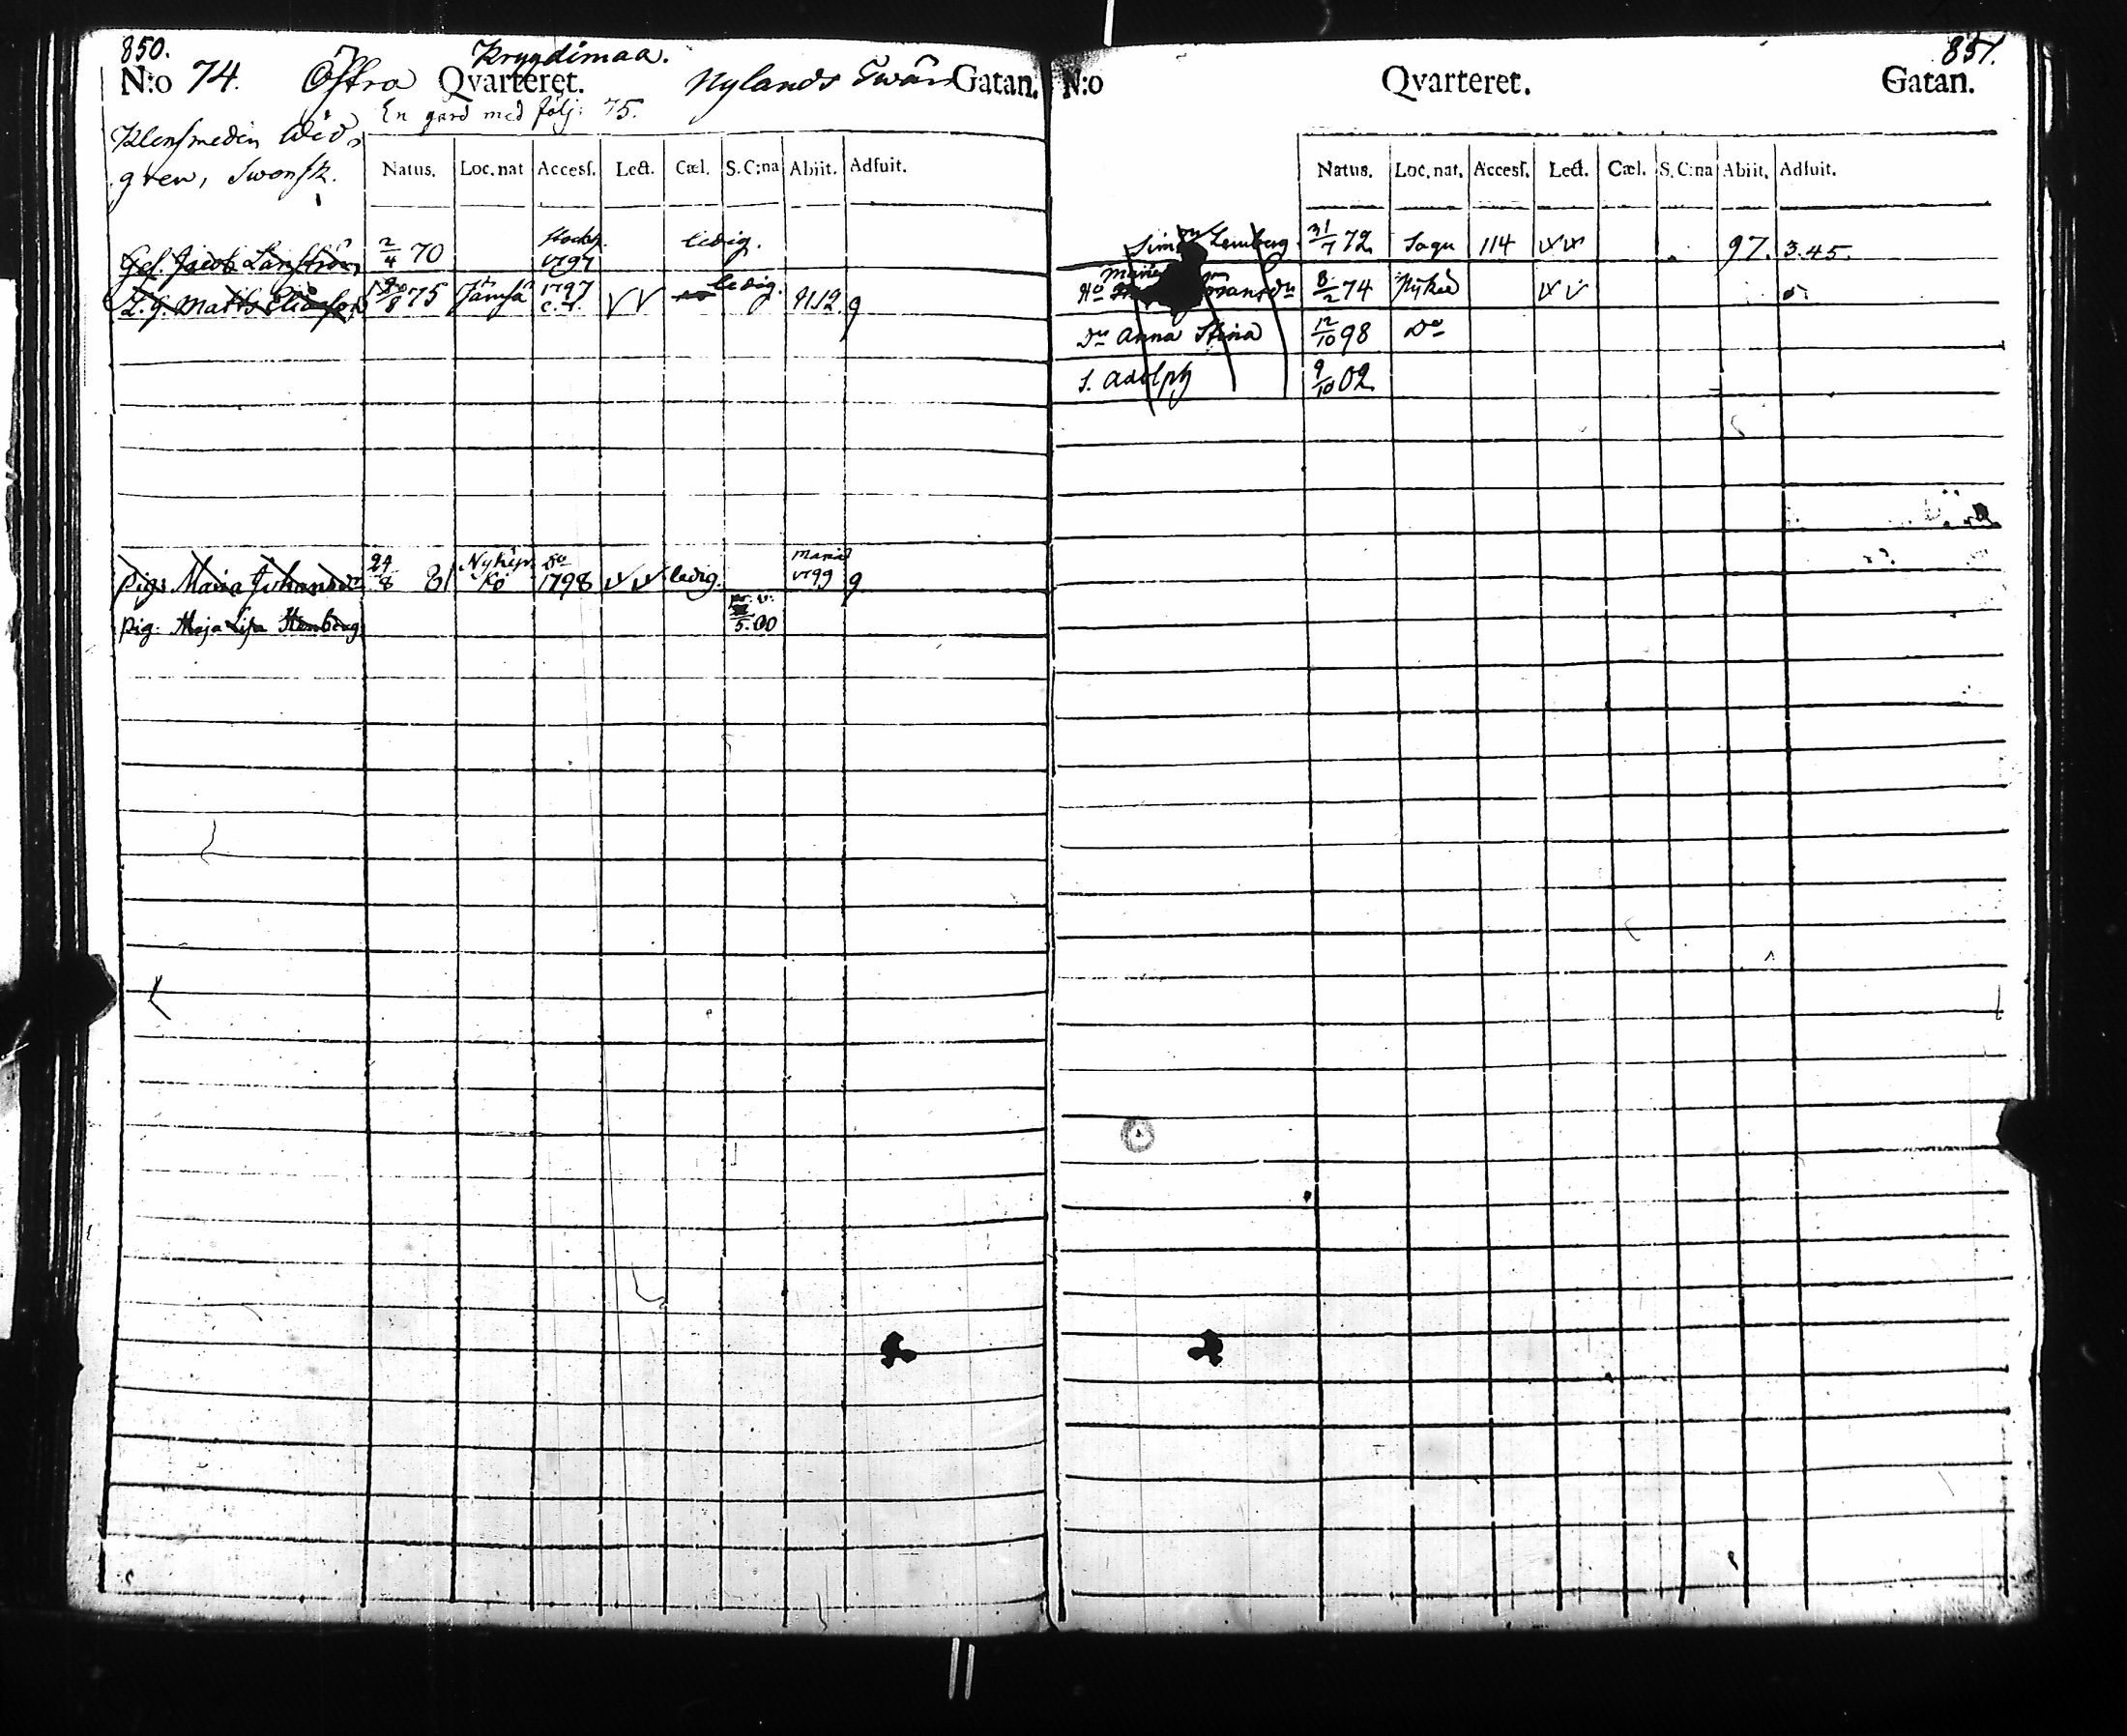 850.
Kryydimaa.
N:o 74. Östra Qvarteret. Nylands Twär Gatan.
En gård med följ: 75.
Klensmeden Wid-
gren, Swensk.
Natus. Loc. nat Access. Lect. Cæl. S. C:na Abiit. Adfuit.
Ges. Jacob Lanström 2/4 70 1797 ledig.
L. G. Matts Eliasson 8 75 Jämsä 1797 V V ledig. 9112 g
Pig. Maria Johansdr 24/8 81 Nykyr. Ko 1798 ledig. Maria 1799 g
Pig. Maja Lisa Stenberg 5.00
851.
N:o Qvarteret. Gatan.
Natus. Loc. nat. Access. Lect. Cæl. S. C:na Abiit. Adfuit.
Simon Lemberg 31/7 72 Sagu 114 97. 3.45.
Hu Maria 8/2 74 Nykir
Dr Anna Stina 12/10 98 Do
S. Adolph 9/10 02